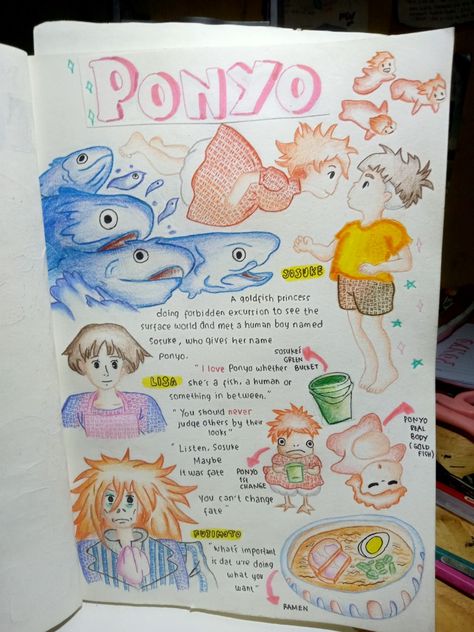 PONYO
SOSUKE
A goldfish princess
doing forbidden excursion to see the
surface world and met a human boy named
Sosuke, who gives her name
Ponyo.
SOSUKE'S
GREEN
BUCKET
"I love Ponyo whether
LISA
she's a fish, a human or
something in between."
"You should never
judge others by their
looks"
PONYO
REAL
BODY
(GOLD
FISH)
"Listen, Sosuke
Maybe
it was fate
PONYO
1ST
CHANGE
You can't change
fate"
FUJIMOTO
"What's important
is dat u're doing
what you
want"
RAMEN